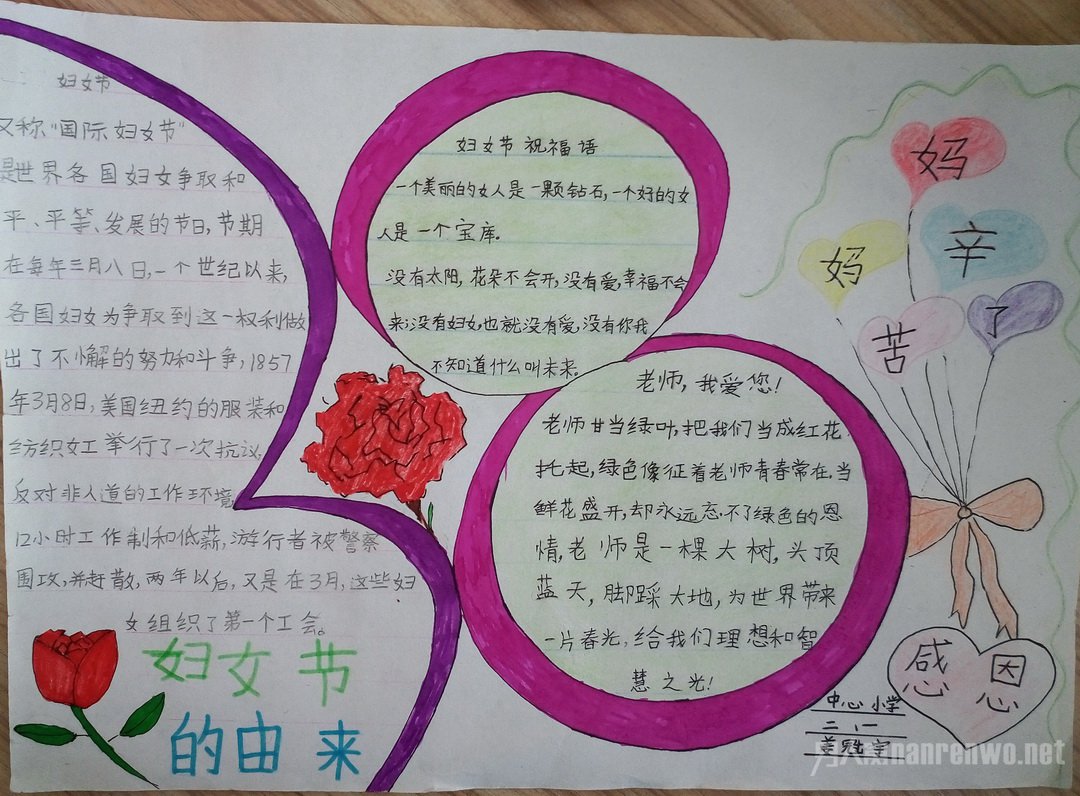 妇女节
又称"国际妇女节"
是世界各国妇女争取和
平、平等、发展的节日,节期
在每年三月八日,一个世纪以来,
各国妇女为争取到这一权利做
出了不懈的努力和斗争,1857
年3月8日,美国纽约的服装和
纺织女工举行了一次抗议,
反对非人道的工作环境,
12小时工作制和低薪,游行者被警察
围攻,并赶散,两年以后,又是在3月,这些妇
女组织了第一个工会。
妇女节
的由来
妇女节祝福语
一个美丽的女人是一颗钻石,一个好的女
人是一个宝库。
没有太阳,花朵不会开,没有爱,幸福不会
来;没有妇女,也就没有爱,没有你我
不知道什么叫未来。
老师,我爱您!
老师甘当绿叶,把我们当成红花
托起,绿色像征着老师青春常在,当
鲜花盛开,却永远忘不了绿色的恩
情,老师是一棵大树,头顶
蓝天,脚踩大地,为世界带来
一片春光,给我们理想和智
慧之光!
妈
妈
辛
苦
了
感恩
中心小学
二、一
nanrenwo.net